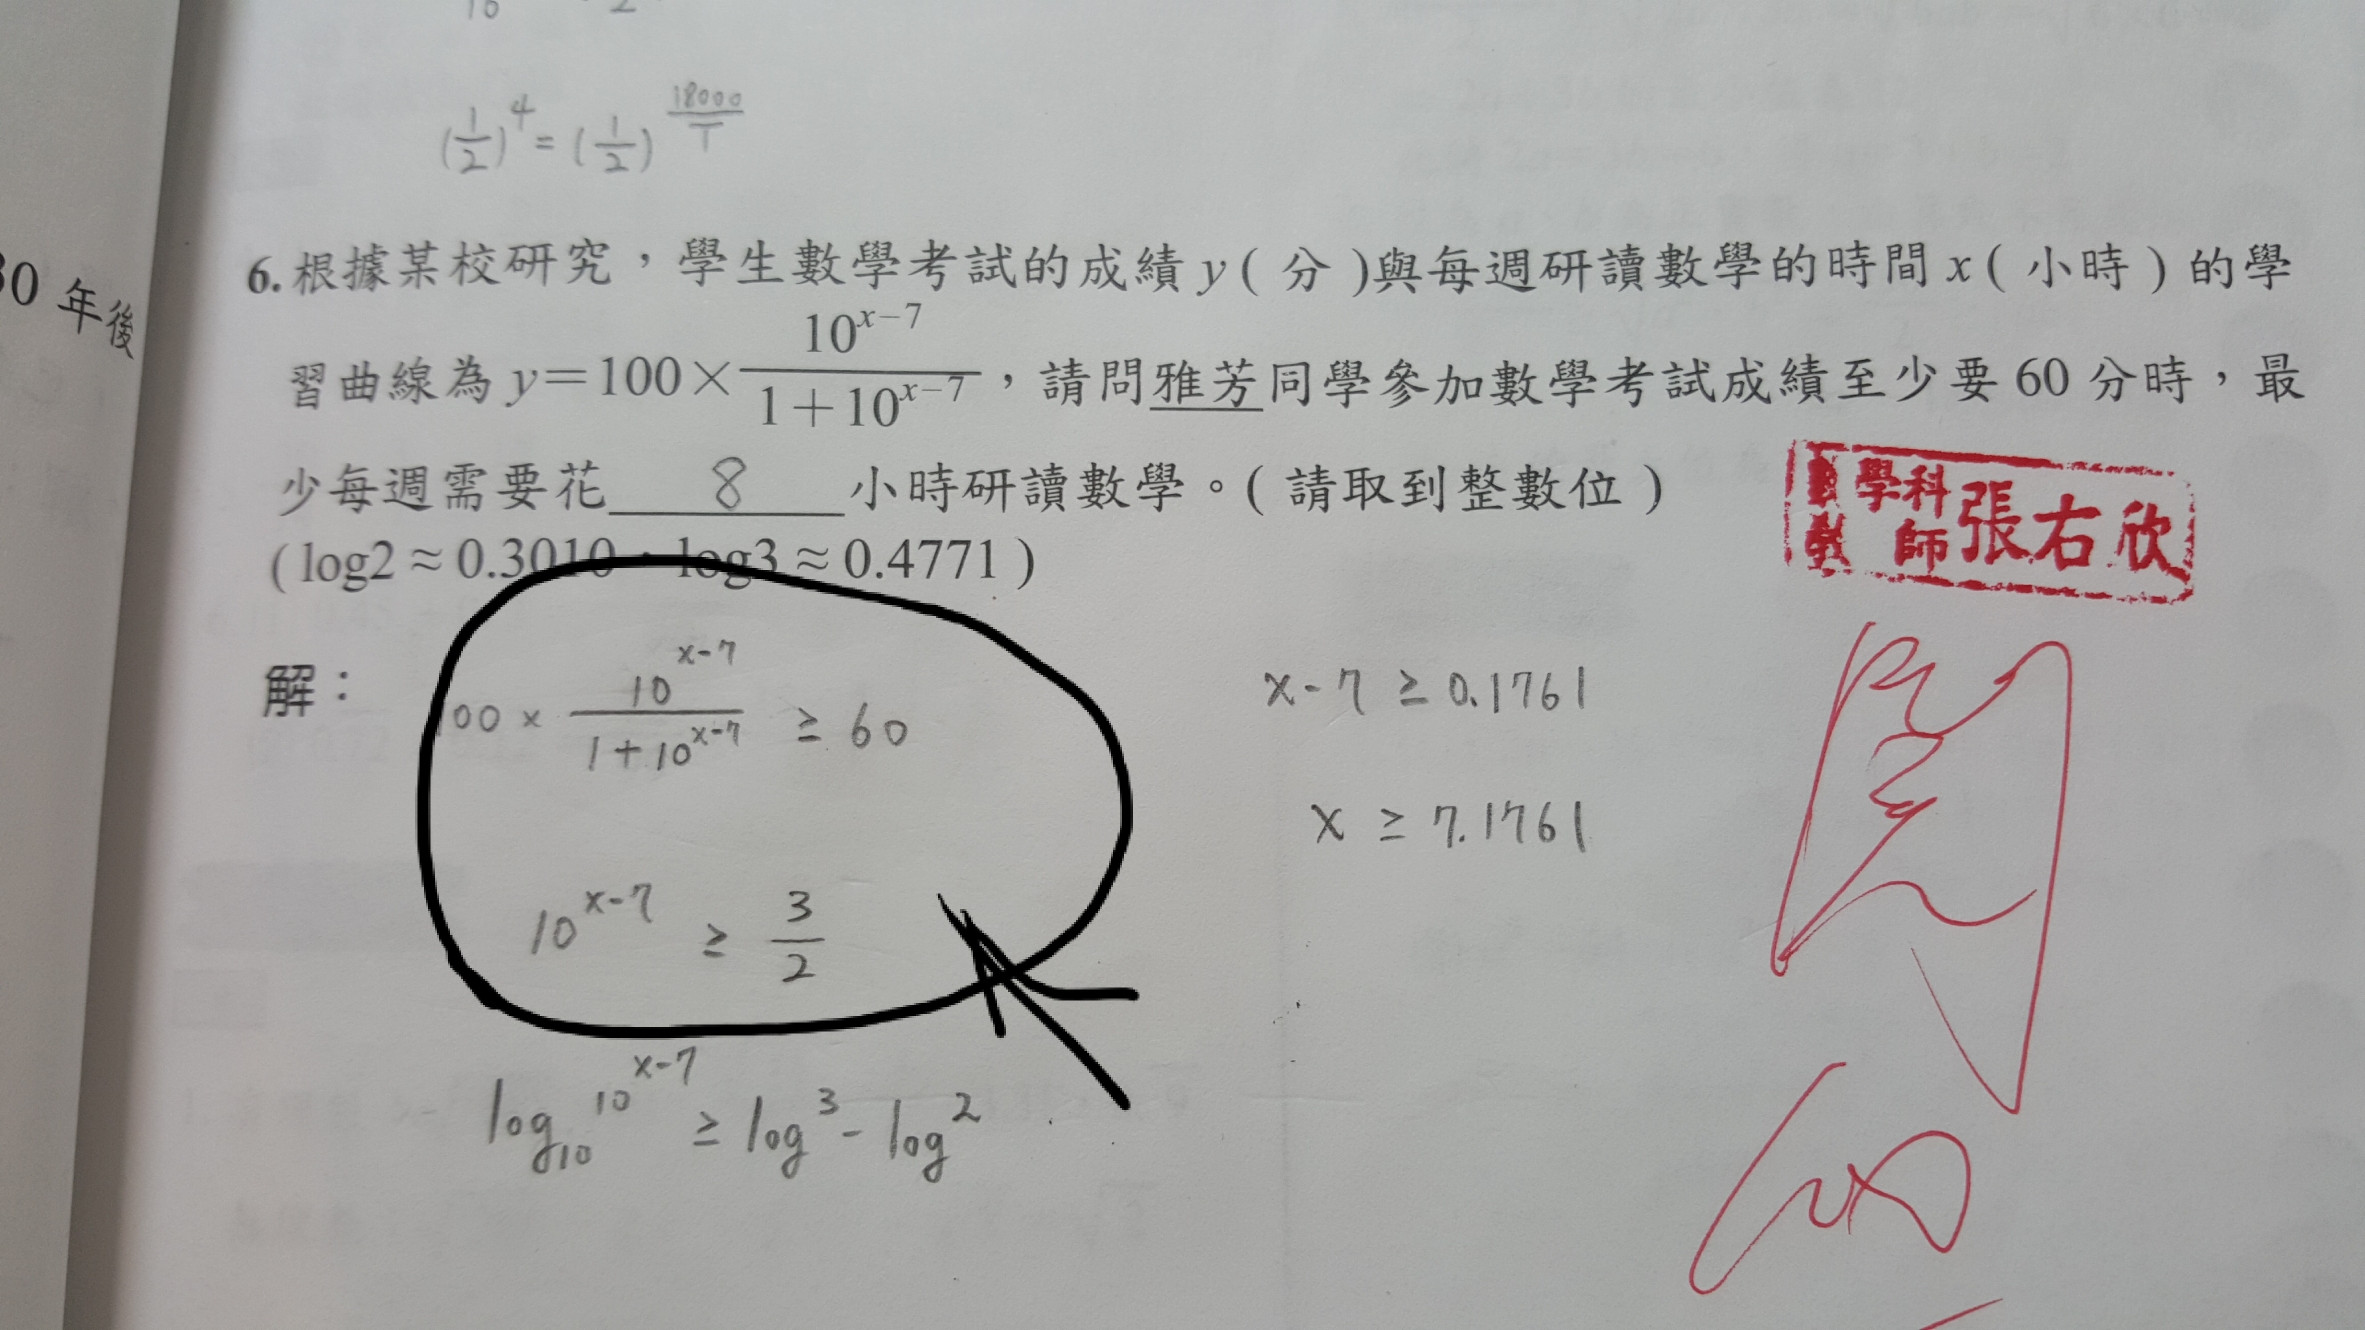 (1/2)^4 = (1/2)^(18000/T)
30 年後
6.根據某校研究，學生數學考試的成績 y ( 分 )與每週研讀數學的時間 x ( 小時 ) 的學
習曲線為 y=100×10^(x-7)/(1+10^(x-7))，請問雅芳同學參加數學考試成績至少要 60 分時，最
少每週需要花 8 小時研讀數學。( 請取到整數位 )
( log2 ≈ 0.3010，log3 ≈ 0.4771 )
學科
師張右欣
解：
100 × 10^(x-7)/(1+10^(x-7)) ≥ 60
10^(x-7) ≥ 3/2
log_10 10^(x-7) ≥ log3 - log2
x-7 ≥ 0.1761
x ≥ 7.1761